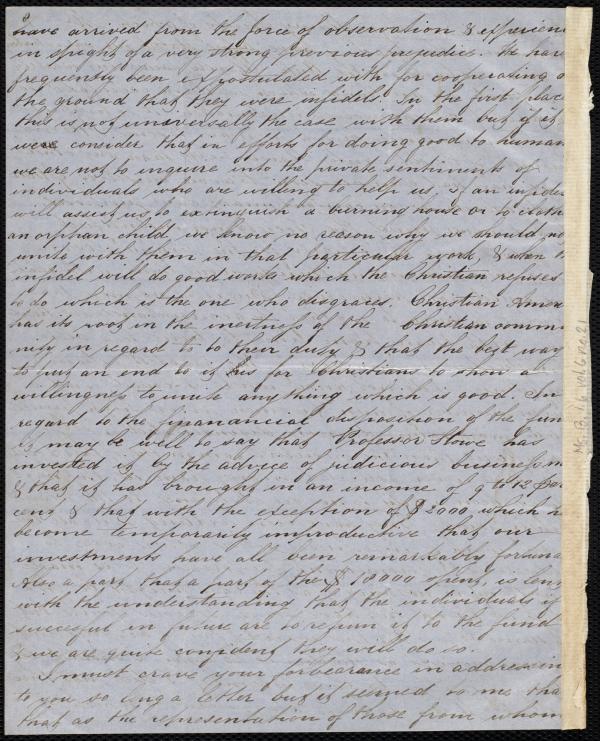 have arrived from the force of observation & experienc
in spight of a very strong previous prejudice. We have
frequently been expostulated with for cooperating o
the ground that they were infidels. In the first place
this is not universally the case with them but if it
were consider that in efforts for doing good to human
we are not to inquire into the private sentiments of
individuals who are willing to help us, if an infidel
will assist us to extinguish a burning house or to cloth
an orphan child we know no reason why we should no
unite with them in that particular work, & when th
infidel will do good works which the Christian refuses
to do which is the one who disgraces Christian
has its root in the inertness of the Christian commu
nity in regard to to their duty & that the best way
to put an end to it is for Christians to show a
willingness to unite anything which is good. In
regard to the finanancial disposition of the fun
it may be well to say that Professor Stowe has
invested it by the advice of judicious business m
& that it has brought in an income of 9 to 12 per
cent & that with the exception of $2000 which h
become temporarily improductive that our
investments have all been remarkably fortuna
Also a part that a part of the $18000 spent, is len
with the understanding that the individuals if
succesful in future are to return it to the fund
& we are quite confident they will do so.
I must crave your forbearance in addressin
to you so long a letter but it seemed to me tha
that as the representation of those from whom
Ms. B. 1.6 vol. 6 no. 21